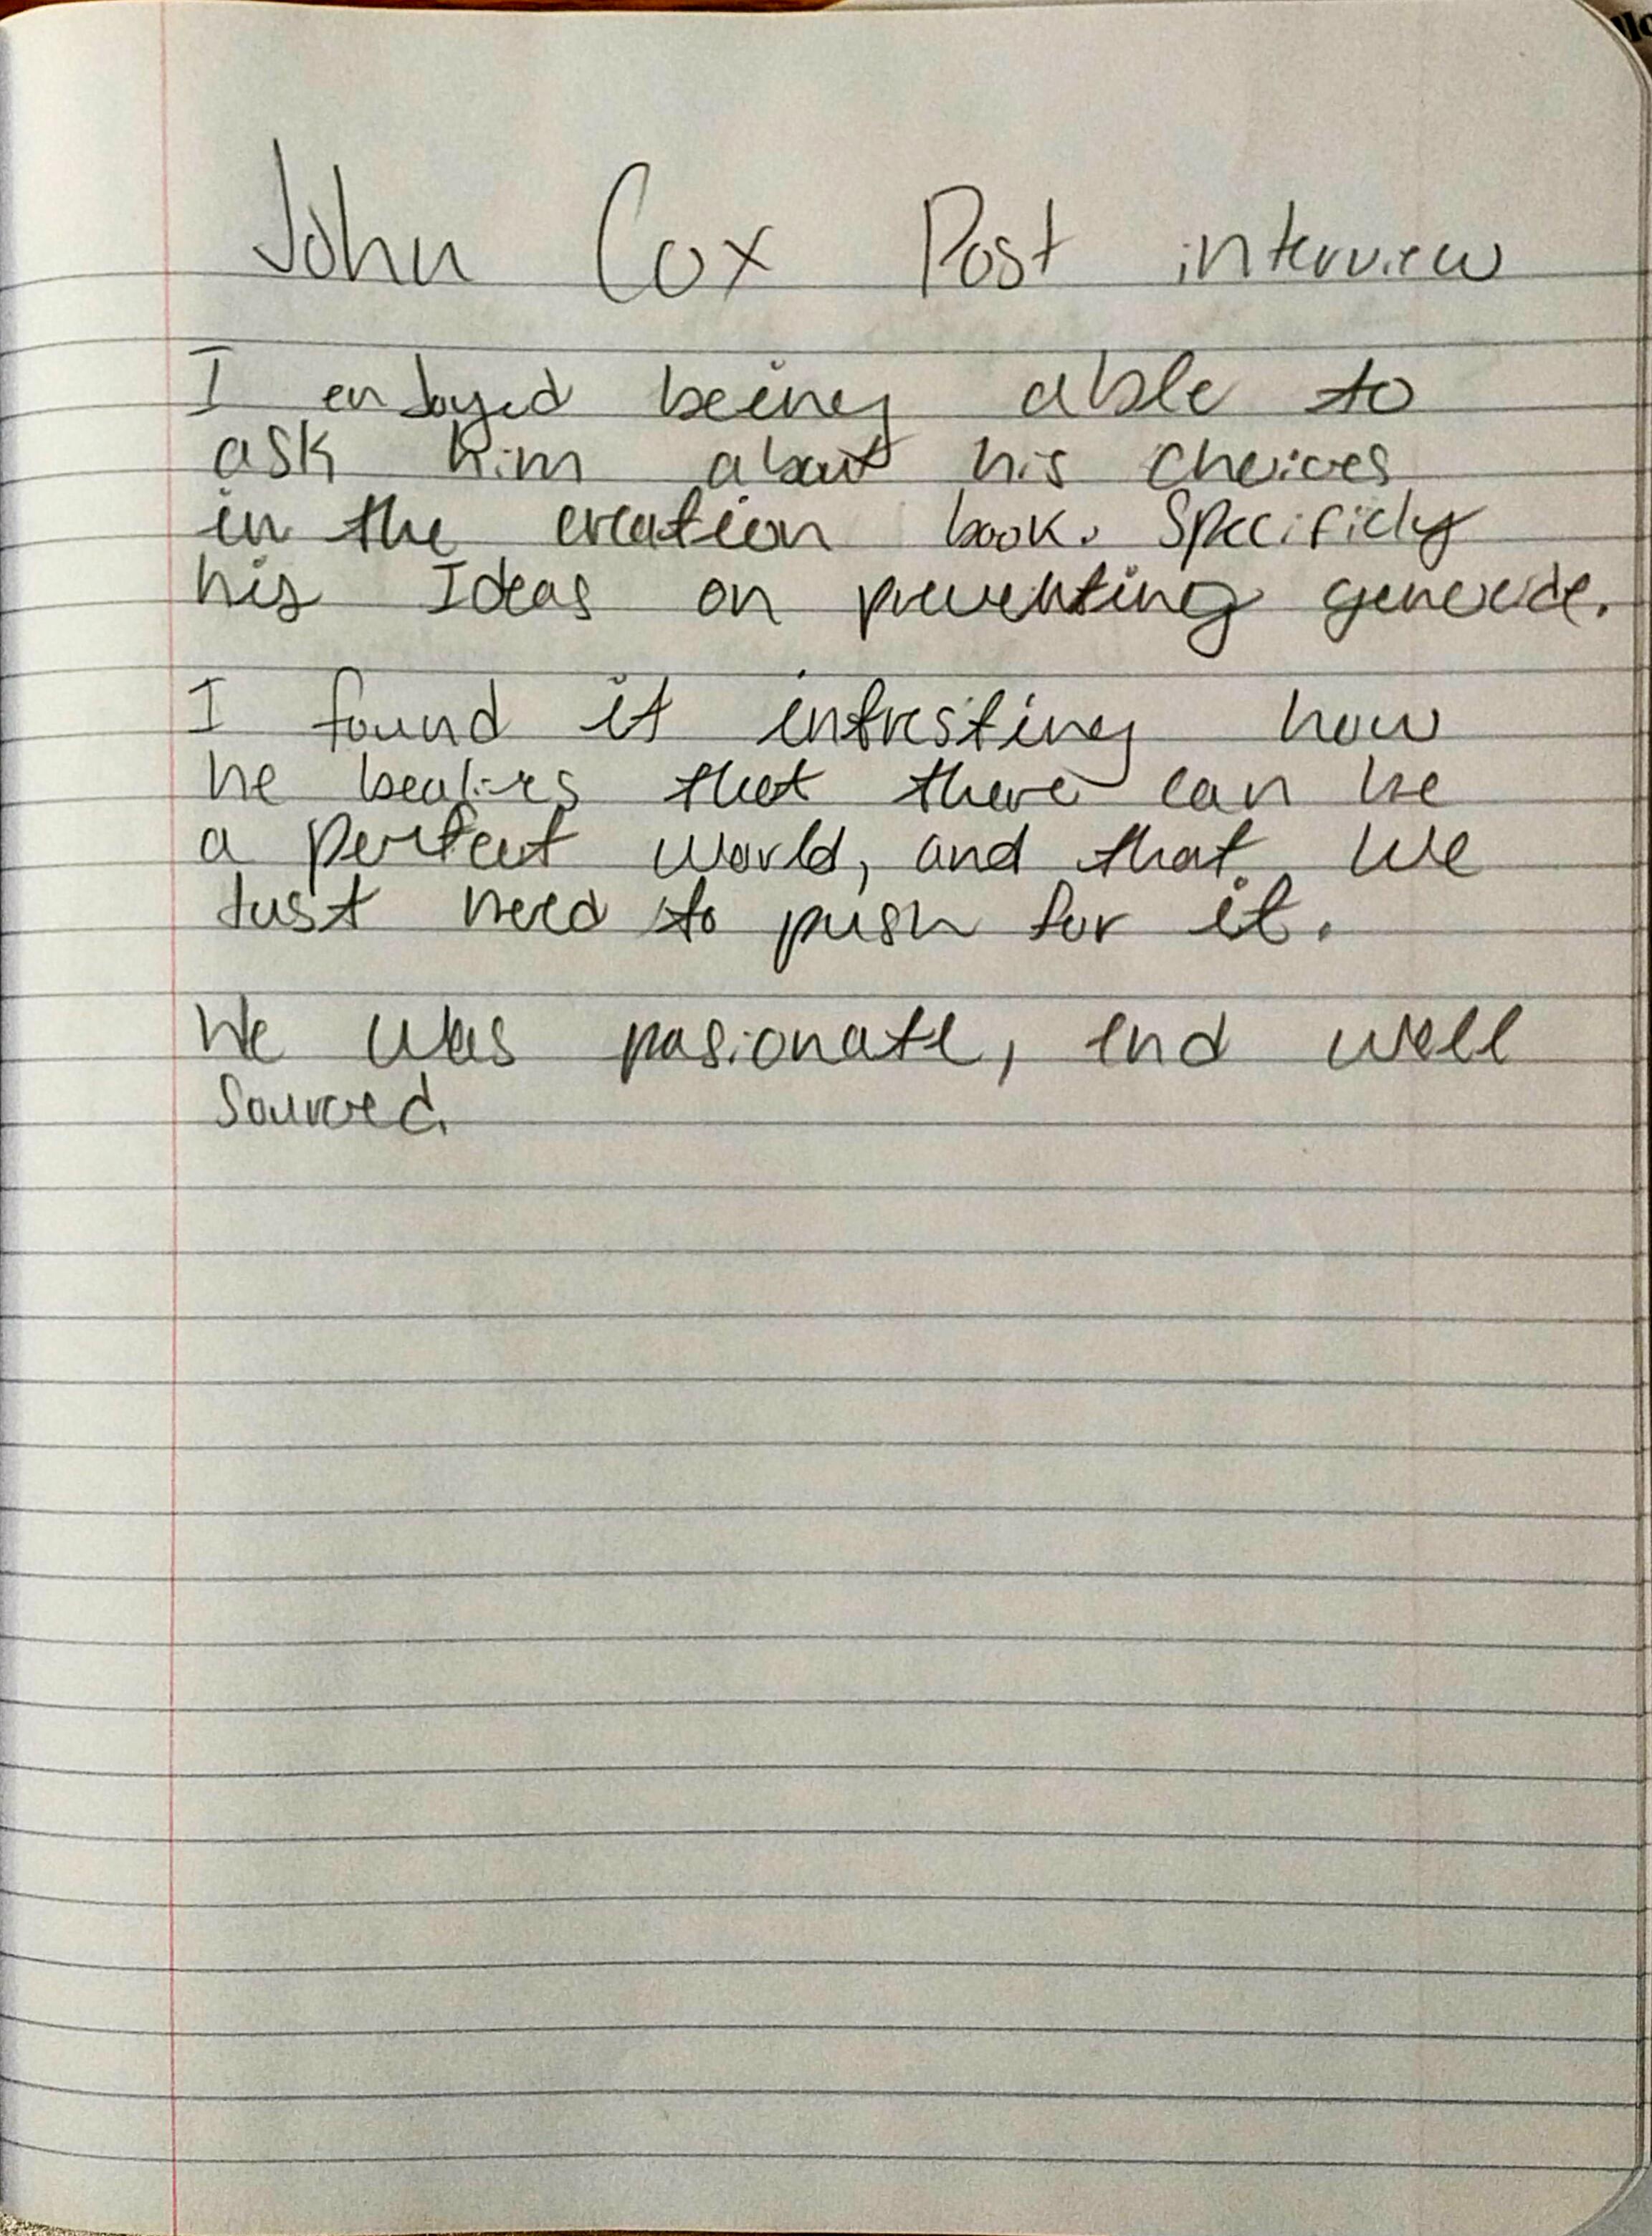 John Cox Post interview
I enjoyed being able to
ask him about his choices
in the creation book. Specificly
his Ideas on preventing genocide.
I found it intresting how
he bealives that there can be
a perfect world, and that we
Just need to push for it.
He was pasionate, end well
sourced.